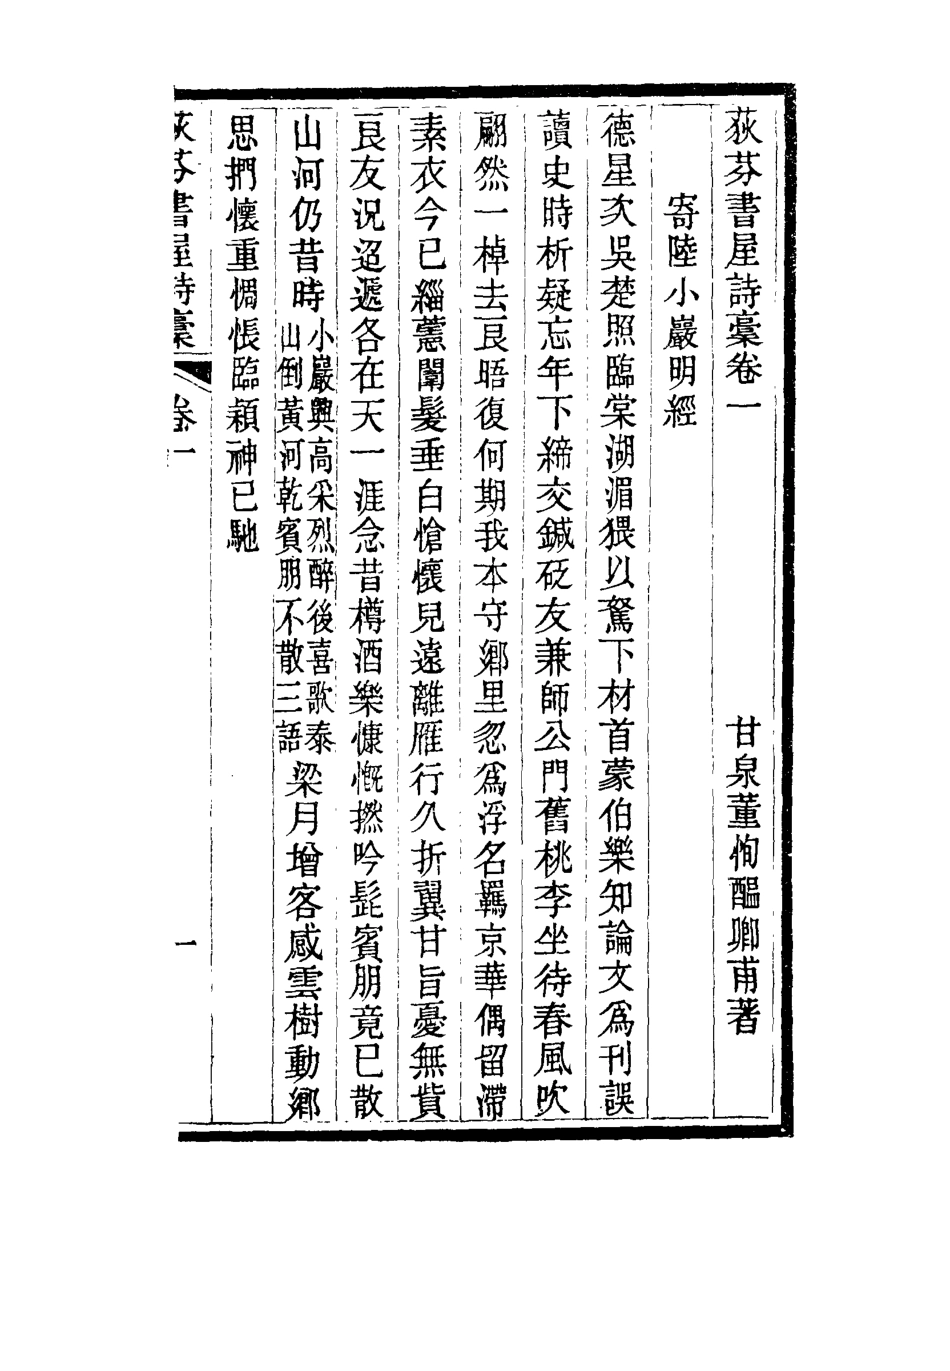 荻芬書屋詩稾卷一
甘泉董恂醞卿甫著
寄陸小巖明經
德星次吳楚照臨棠湖湄猥以駑下材首蒙伯樂知論文為刊誤
讀史時析疑忘年下締交鍼砭友兼師公門舊桃李坐待春風吹
翩然一棹去良晤復何期我本守鄉里忽為浮名羈京華偶留滯
素衣今已緇萱闈髮垂白愴懷兒遠離雁行久折翼甘旨憂無貲
良友況迢遞各在天一涯念昔樽酒樂慷慨撚吟髭賓朋竟已散
山河仍昔時
小巖興高采烈醉後喜歌泰
山倒黃河乾賓朋不散三語
梁月增客感雲樹動鄉
思捫懷重惆悵臨穎神已馳
荻芬書屋詩稾
卷一
一